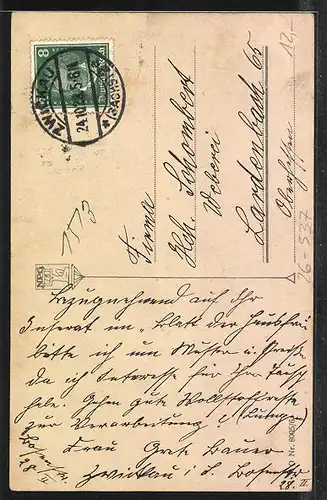 8
ZWICKAU
(SACHS)
24.10.
Firma
Hch. Schombert
Weberei
Lardenbach 65
Oberhessen
12,-
76-537
NPG
Bezugnehmend auf Ihr
Inserat im „Blatt der Hausfrau
bitte ich um Muster u. Preise
da ich Interesse für Ihre
habe. Gebe gute Wollstoffreste
zur Verarbeitung (Lumpen)
Frau Grete Bauer
Zwickau i. S.
28. II
Nr. 8005/6